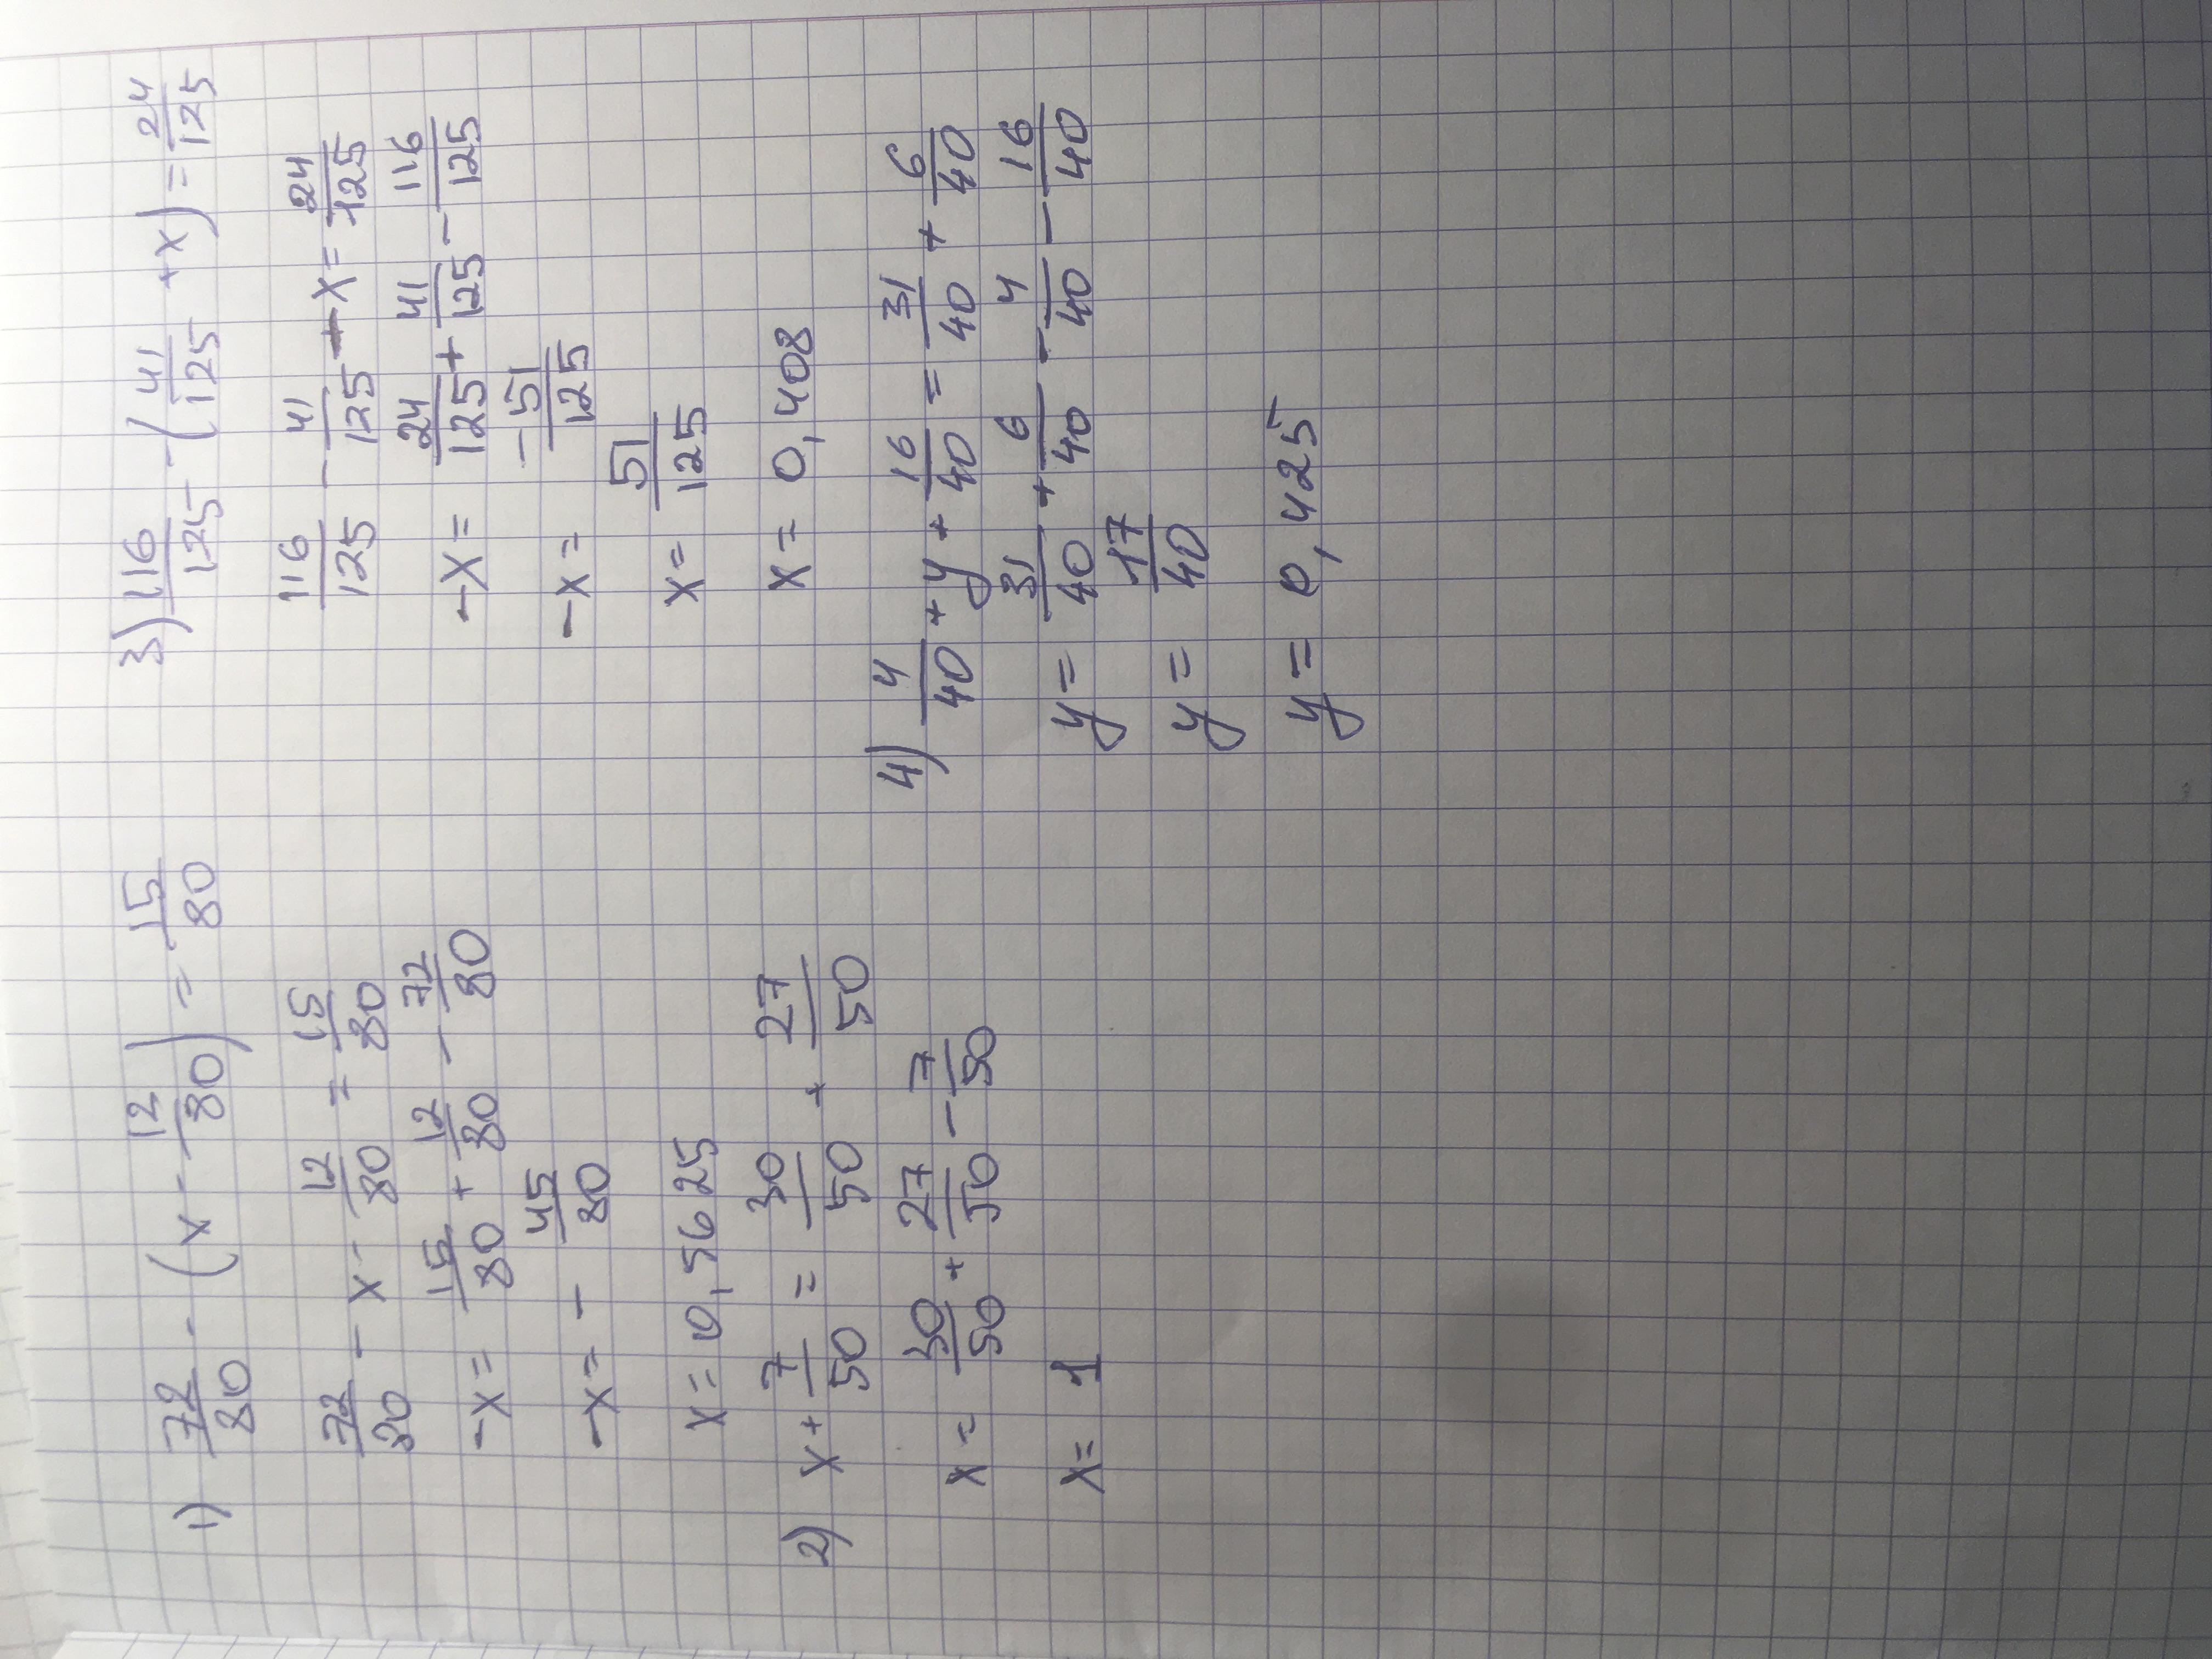 1) 72/80 - (x - 12/80) = 15/80
72/80 - x - 12/80 = 15/80
-x = 15/80 + 12/80 - 72/80
-x = - 45/80
x = 0,5625
2) x + 7/50 = 30/50 + 27/50
x = 30/50 + 27/50 - 7/50
x = 1
3) 116/125 - (41/125 + x) = 24/125
116/125 - 41/125 - x = 24/125
-x = 24/125 + 41/125 - 116/125
-x = -51/125
x = 51/125
x = 0,408
4) 4/40 + y + 16/40 = 31/40 + 6/40
y = 31/40 + 6/40 - 4/40 - 16/40
y = 17/40
y = 0,425